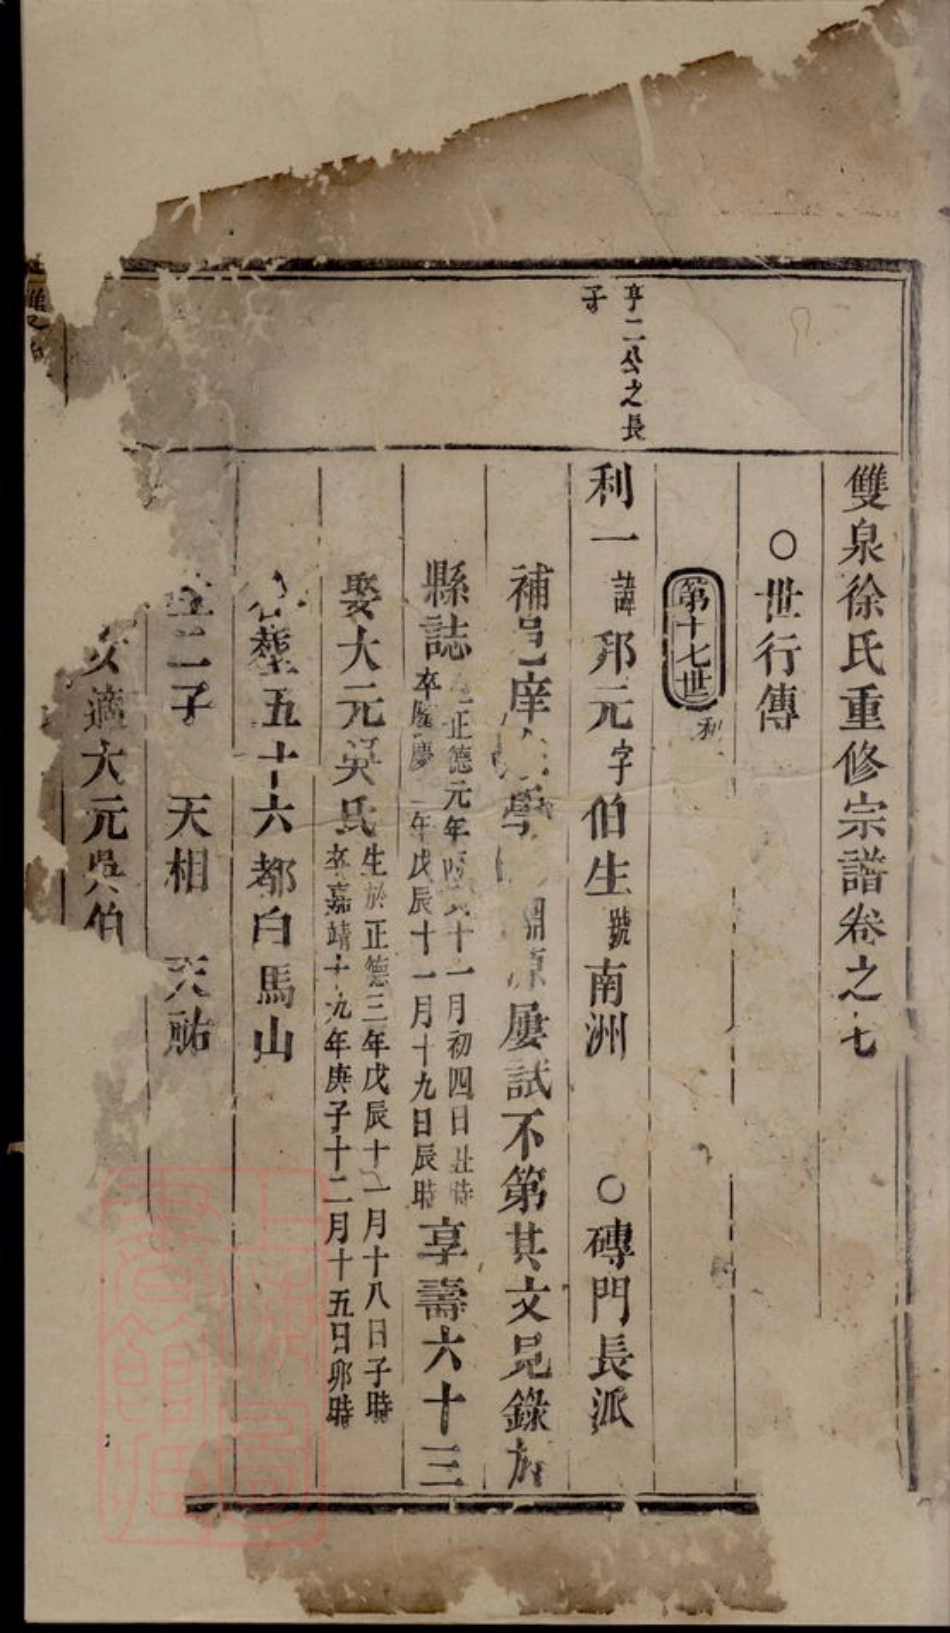 雙泉徐氏重修宗譜卷之七
○世行傳
第十七世 利
亨二公之長
子
利一 諱邦元字伯生號南洲 ○磚門長派
補邑庠 學 淵源屢試不第其文見錄於
縣誌 正德元年 十一月初四日丑時
卒隆慶二年戊辰十一月十九日辰時 享壽六十三
娶大元吳氏 生於正德三年戊辰十二月十八日子時
卒嘉靖十九年庚子十二月十五日卯時
公葬五十六都白馬山
二子 天相 天祐
女適大元吳伯
雙